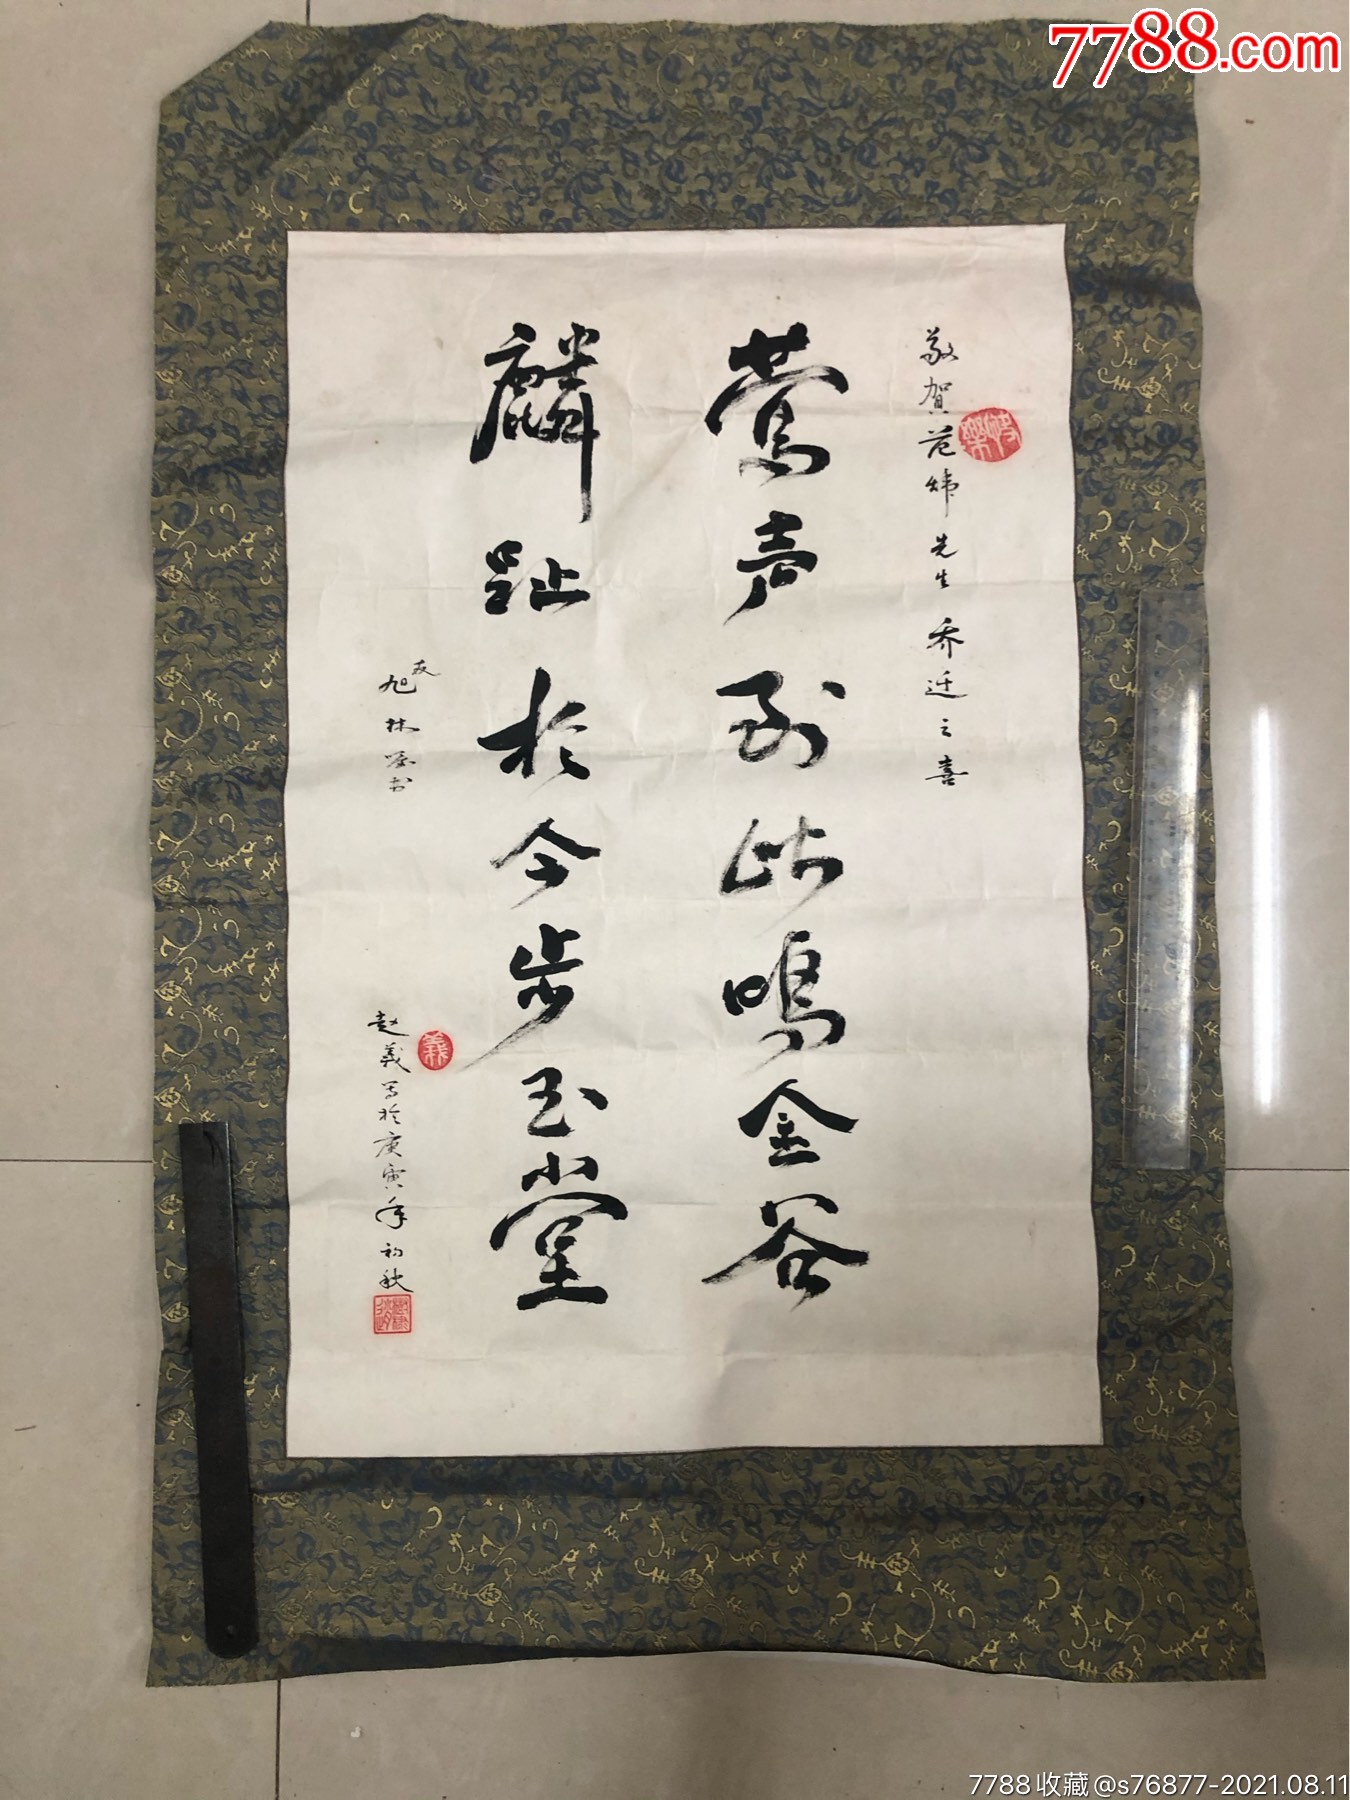 7788.com
敬贺范炜先生乔迁之喜
莺声到此鸣金谷
麟趾於今步玉堂
友
旭林属书
赵義写於庚寅年初秋
義
7788收藏@s76877-2021.08.11